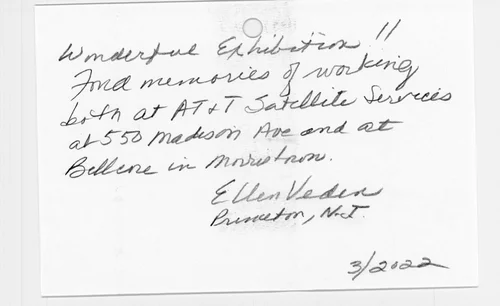 Wonderful Exhibition!!
Fond memories of working
both at AT+T Satellite Services
at 550 Madison Ave and at
Bellcore in Morristown.
Ellen Veden
Princeton, N.J.
3/2022